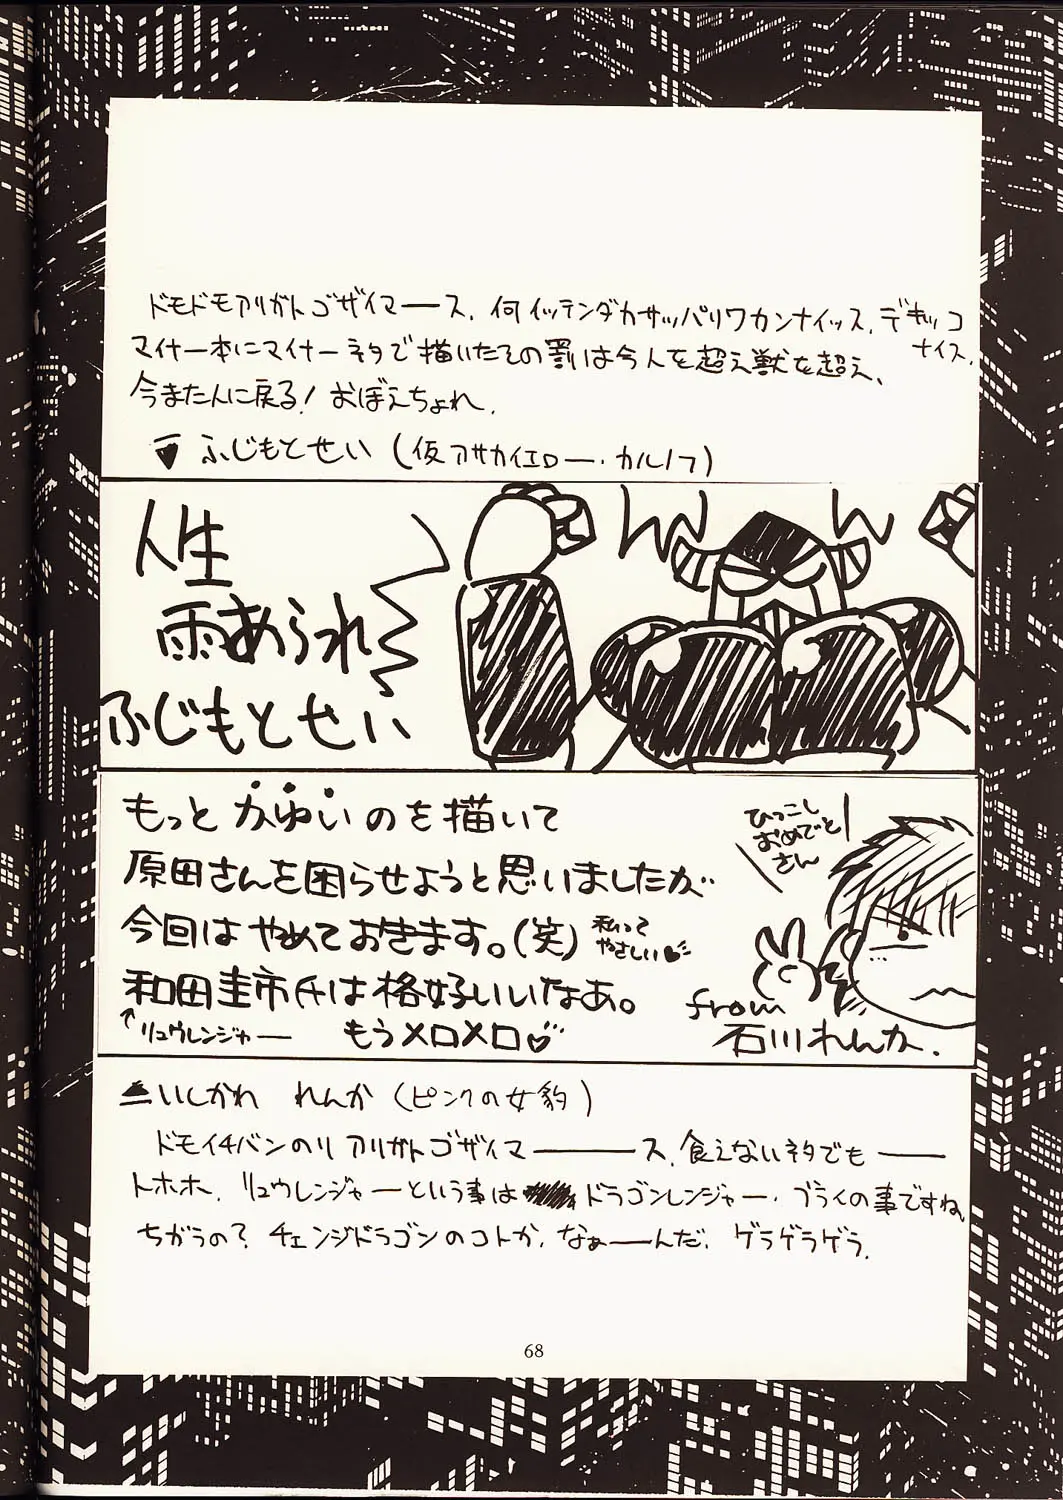 ドモドモアリガトゴザイマーース.何イッテンダカサッパリワカンナイッス.デキッコ
ナイス.
マイナー本にマイナーネタで描いたその罰は今人を超え獣を超え、
今また人に戻る!おぼえちょれ.
ふじもとせい(仮アサカイエロー・カルノフ)
人生
雨あられ
ふじもとせい
もっとかゆいのを描いて
原田さんを困らせようと思いましたが…
今回はやめておきます。(笑)
私って
やさしい♥
和田圭市氏は格好いいなあ。
↑リュウレンジャー
もうメロメロ♡
ひっこし
おめでと
さん
from
石川れんか.
いしかわ れんか(ピンクの女豹)
ドモイチバンのリアリガトゴザイマーーース.食えないネタでもーー
トホホ.リュウレンジャーという事は ドラゴンレンジャー・ブライの事ですね.
ちがうの?チェンジドラゴンのコトか.なぁーーんだ.ゲラゲラゲラ.
68